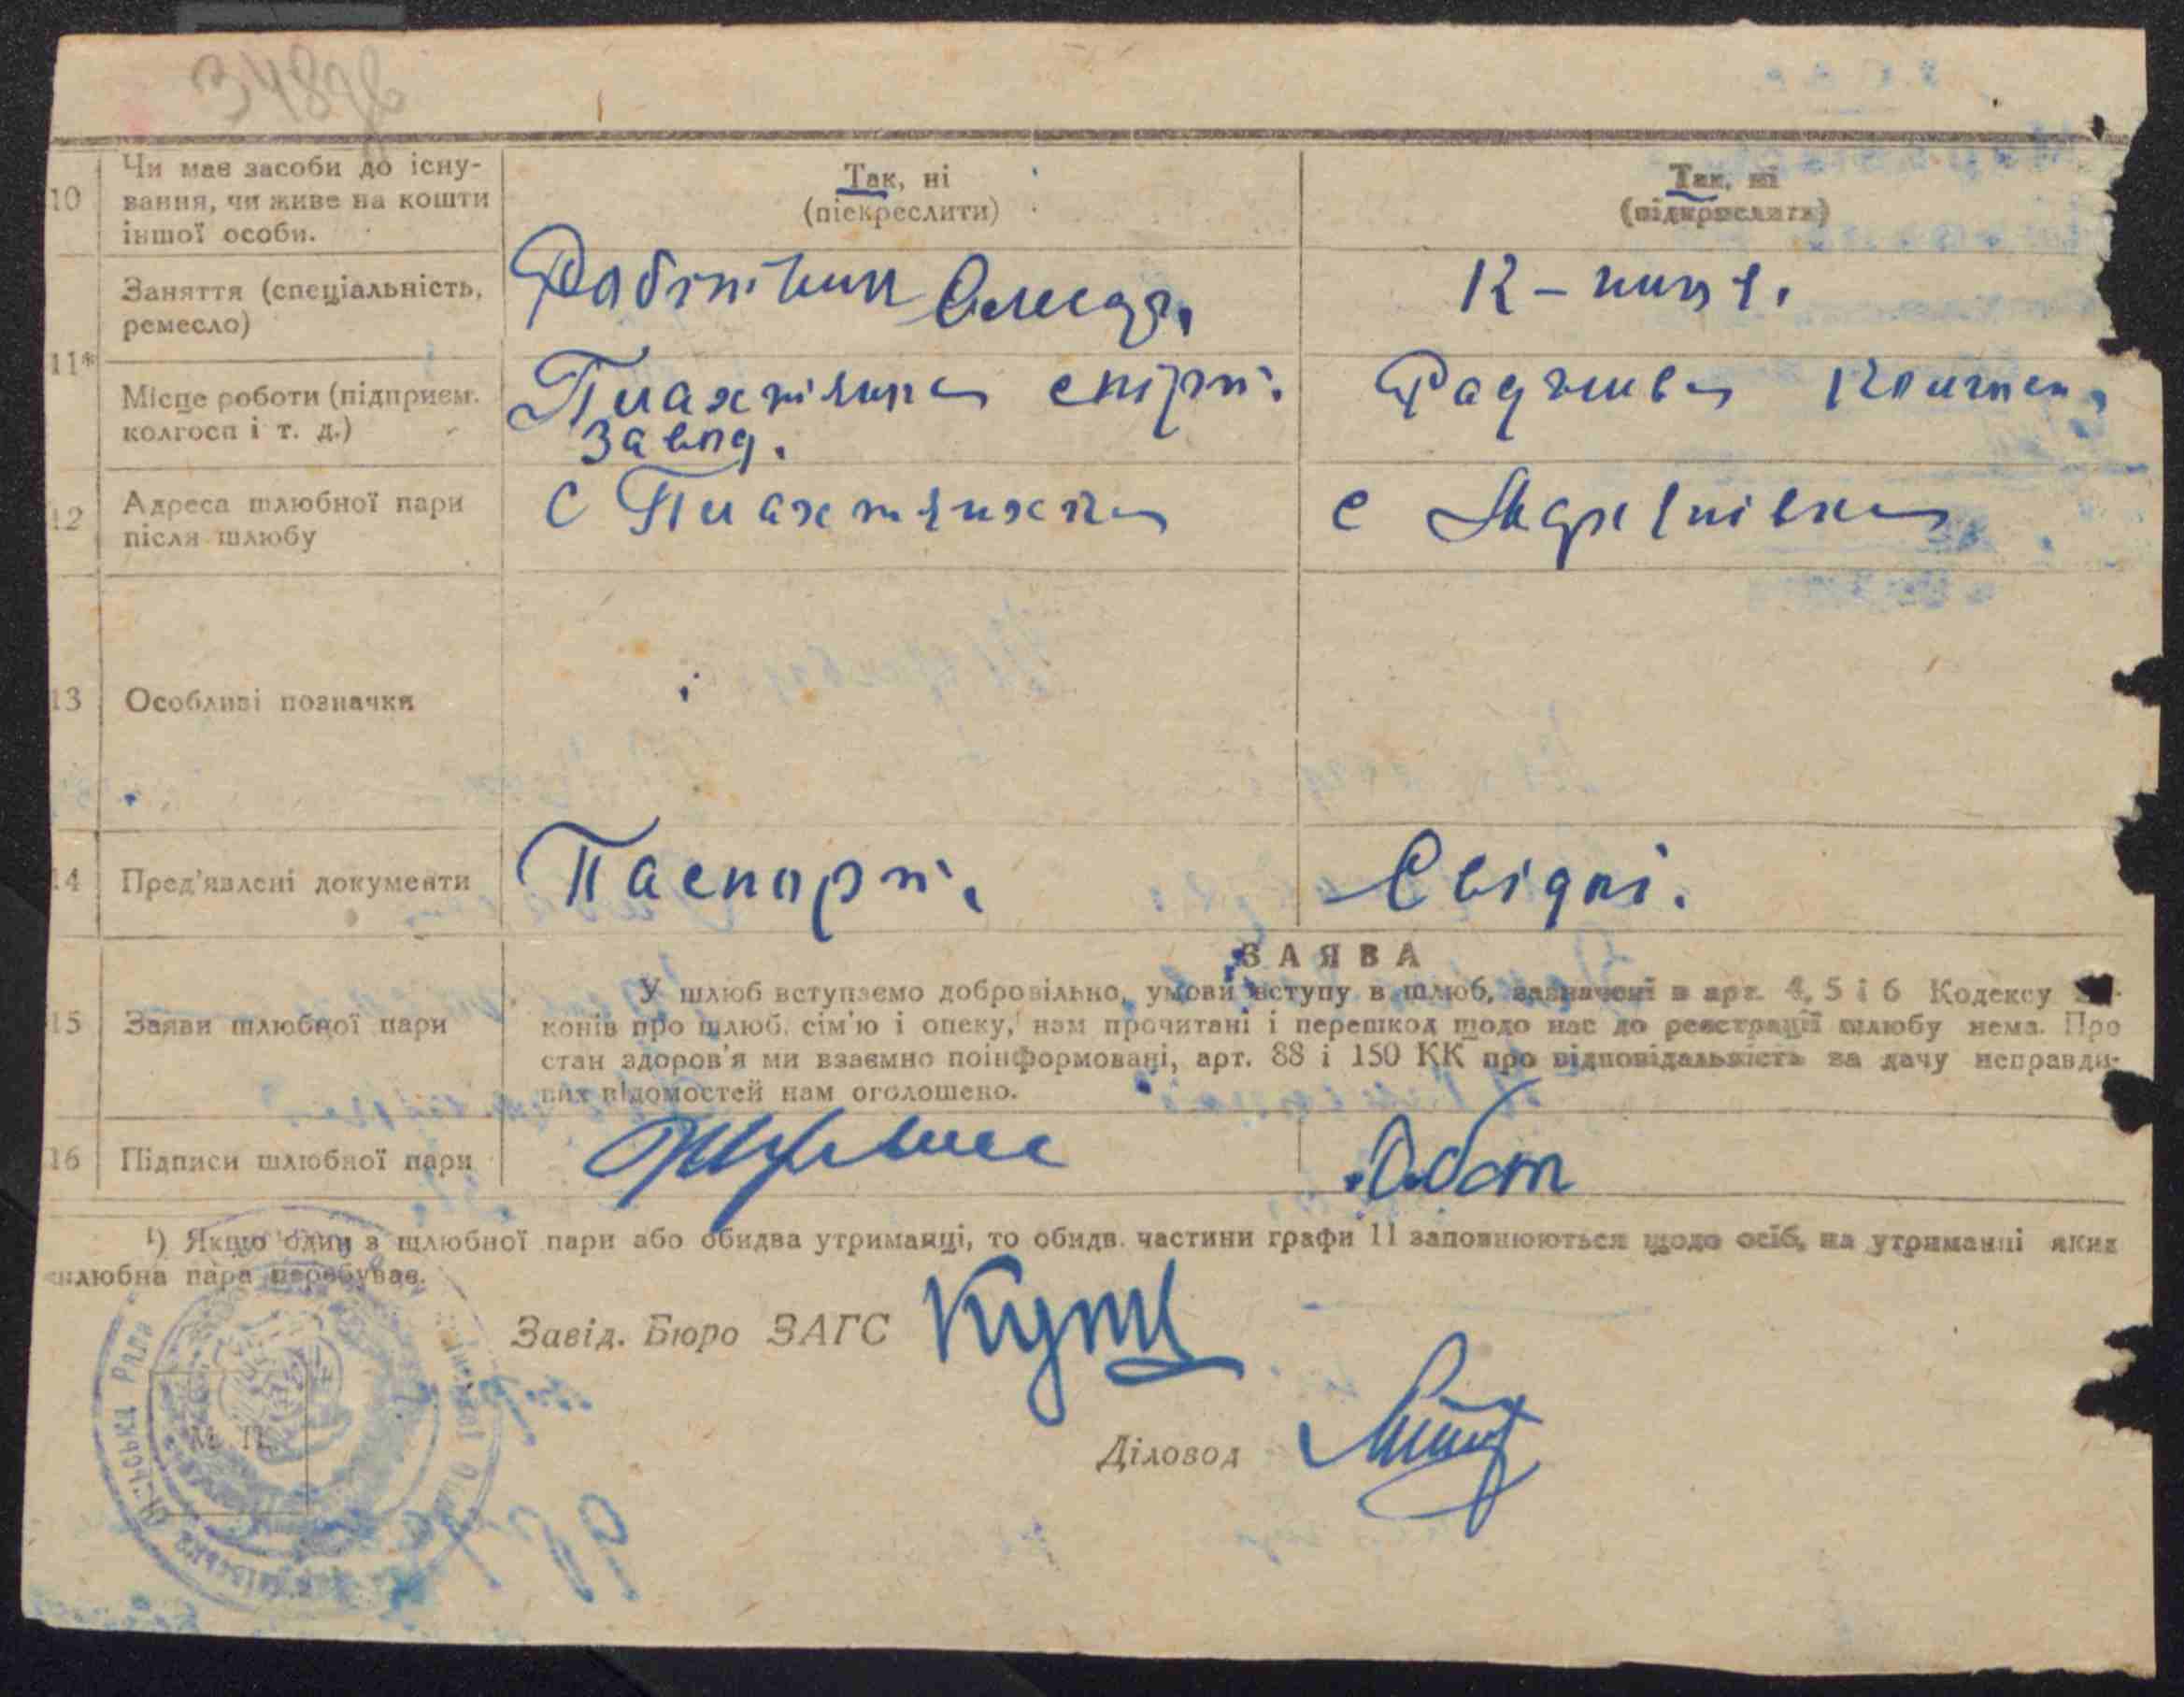 348зв
10
Чи має засоби до існу-
вання, чи живе на кошти
іншої особи.
Так, ні
(піекреслити)
Так, ні
(підкреслити)
11*
Заняття (спеціальність,
ремесло)
Робітник
К-ниця.
Місце роботи (підприєм.
колгосп і т. д.)
Плахтянка спірт.
завод.
12
Адреса шлюбної пари
після шлюбу
с Плахтянка
с
13
Особливі позначки
14
Пред'явлені документи
Паспорт.
Свідкі.
15
Заяви шлюбної пари
ЗАЯВА
У шлюб вступаємо добровільно, умови вступу в шлюб, зазначені в арт. 4, 5 і 6 Кодексу
конів про шлюб, сім'ю і опеку, нам прочитані і перешкод щодо нас до реєстрації шлюбу нема. Про
стан здоров'я ми взаємно поінформовані, арт. 88 і 150 КК про відповідальність за дачу неправди-
вих відомостей нам оголошено.
16
Підписи шлюбної пари
¹) Якщо один з шлюбної пари або обидва утриманці, то обидв. частини графи 11 заповнюються щодо осіб, на утриманні яких
шлюбна пара перебуває.
Завід. Бюро ЗАГС
Діловод
М. П.